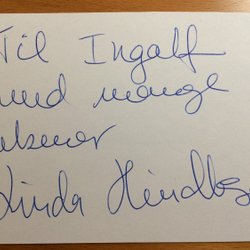 Til Ingalf
med mange
hilsener
Linda Hindberg